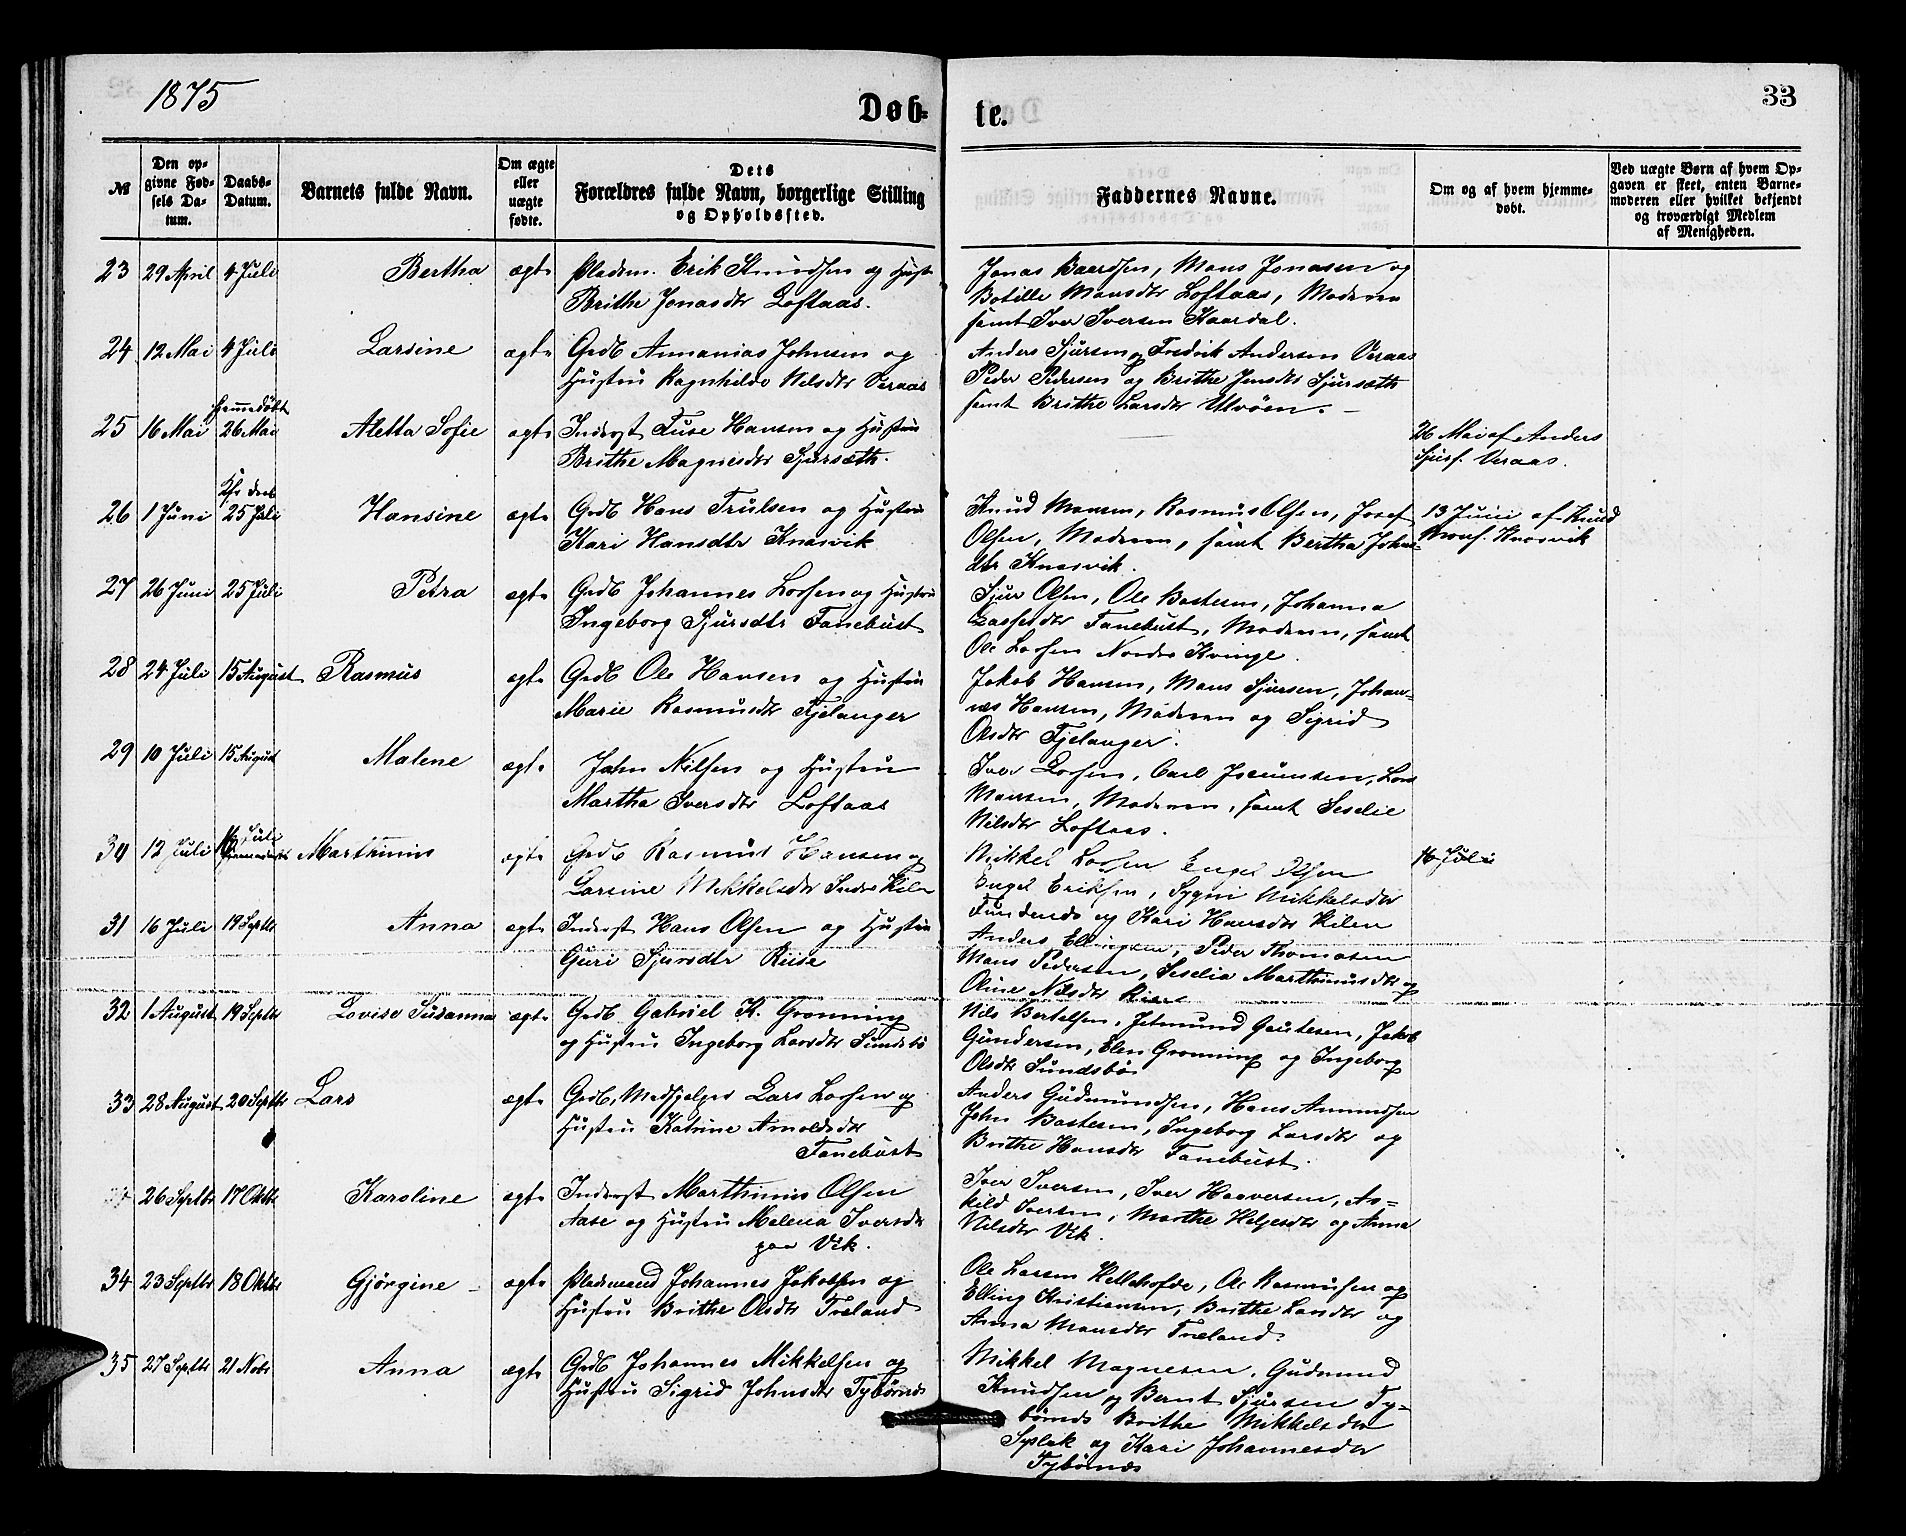 1875
Døb-
te.
33
№
Den op-
givne Fød-
sels Da-
tum.
Daabs-
Datum.
Barnets fulde Navn.
Om ægte
eller
uægte
fødte.
Dets
Forældres fulde Navn, borgerlige Stilling
og Opholdssted.
Faddernes Navne.
Om og af hvem hjemme-
døbt.
Ved uægte Børn af hvem Op-
gaven er skeet, enten Barne-
moderen eller hvilket bekjendt
og troværdigt Medlem
af Menigheden.
23 29 April 4 Juli Bertha ægte Pladsm. Erik Knudsen og Hustr
Brithe Jonasdtr Loftaas.
Jonas Baardsen, Mons Jonasen og
Botille Monsdtr Loftaas, Moderen
samt Iver Iversen Kaardal.
24 12 Mai 4 Juli Larsine ægte Grdb Annanias Johnsen og
Hustru Ragnhilde Nilsdtr Veraas
Anders Sjursen og Fredrik Andersen Veraas
Peder Pedersen og Brithe Jensdtr Sjursæth
samt Brithe Larsdtr Ulvøen.
Hjemmedøbt
25 16 Mai 26 Mai Aletta Sofie ægte Inderst Tuse Hansen og Hustru
Brithe Magnesdtr Sjursæth.
26 Mai af Anders
Sjurs. Veraas.
26 1 Juni 25 Juli Hansine ægte Grdb Hans Trulsen og Hustru
Kari Hansdtr Knarvik
Knud Monsen, Rasmus Olsen, Josef
Olsen, Moderen, samt Bertha John-
dtr Knarvik.
13 Juni af Knud
Mons. Knarvik
27 26 Juni 25 Juli Petra ægte Grdb Johannes Larsen og Hustru
Ingeborg Sjursdtr Tanebust
Sjur Olsen, Ole Bastesen, Johanna
Gasfsdtr Tanebust, Moderen, samt
Ole Larsen Nordre Kvinge.
28 24 Juli 15 August Rasmus ægte Grdb Ole Hansen og Hustru
Marie Rasmusdtr Fjelanger
Jakob Hansen, Mons Sjursen, Johan-
nes Hansen, Moderen og Sigrid
Olsdtr Fjelanger.
29 10 Juli 15 August Malene ægte John Nilsen og Hustru
Martha Iversdtr Loftaas
Iver Larsen, Carl Joramsen, Lars
Monsen, Moderen, samt Seselie
Nilsdtr Loftaas.
30 12 Juli 16 Juli Marthinus ægte Grdb Rasmus Hansen og
Larsine Mikkelsdtr Indre Kilen
Mikkel Larsen Engel Olsen
Engel Eriksen, Sygni Mikkelsdtr
Fundenes og Kari Hansdtr Kilen
16 Juli
31 16 Juli 19 Septbr Anna ægte Inderst Hans Olsen og Hustru
Guri Sjursdtr Riise
Anders Ellingsen, Peder Thomasen
Mons Pedersen, Seselia Marthinusdtr og
Oline Nilsdtr Riise
32 1 August 19 Septbr Lovise Susanna ægte Grdb Gabriel K. Grønning
og Hustru Ingeborg Larsdtr Sundsbø
Nils Bertelsen, Jetmund Gautesen, Jakob
Gundersen, Elen Grønning og Ingeborg
Olsdtr Sundsbø
33 28 August 20 Septbr Lars ægte Grdb, Medhjelper Lars Larsen og
Hustru Katrine Arnoldsdtr
Tanebust
Anders Gudmundsen, Hans Amundsen
John Bastesen, Ingeborg Larsdtr og
Brithe Hansdtr Tanebust.
26 Septbr 17 Oktbr Karoline ægte Inderst Marthinus Olsen
Aase og Hustru Malena Iversdtr
paa Vik.
Iver Iversen, Iver Haaversen, As-
kild Iversen, Marthe Heljesdtr og Anna
Nilsdtr Vik.
34 23 Septbr 18 Oktbr Gjørgine ægte Pladsmand Johannes Jakobsen og
Hustru Brithe Olsdtr Træland
Ole Larsen Hellehofde, Ole Rasmusen og
Elling Kristiansen, Brithe Larsdtr og
Anna Monsdtr Træland.
35 27 Septbr 21 Novbr Anna ægte Grdb Johannes Mikkelsen og
Hustru Sigrid Johnsdtr Tybørnes
Mikkel Magnesen, Gudmund
Knudsen og Bernt Sjursen Ty-
børnes Brithe Mikkelsdtr
Syslak og Kari Johannesdtr
Tybørnes